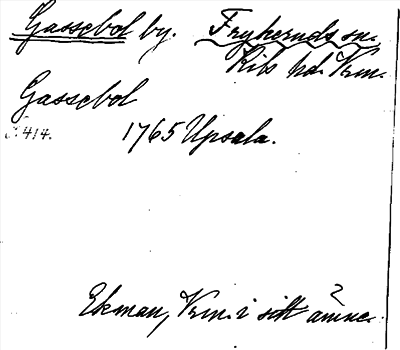 Gassebol by. Frykeruds sn.
Kils hd. Vrm.
Gassebol
S. 414. 1765 Upsala.
Ekman, Vrm. i sitt ämne.